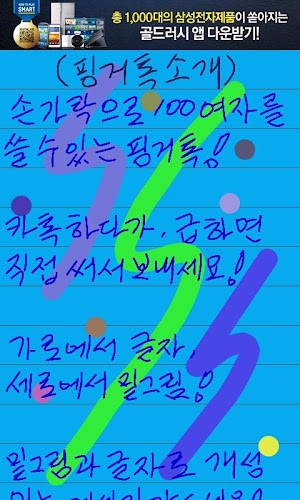 HOW TO PLAY
SMART
총 1,000대의 삼성전자제품이 쏟아지는
골드러시 앱 다운받기!
(핑거톡소개)
손가락으로 100여자를
쓸수있는 핑거톡!
카톡하다가, 급하면
직접 써서보내세요!
가로에서 글자,
세로에서 필그림!
필그림과 글자로 개성